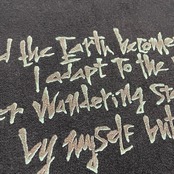 d the Earth become
I adapt to the
er Wandering St
by myself but